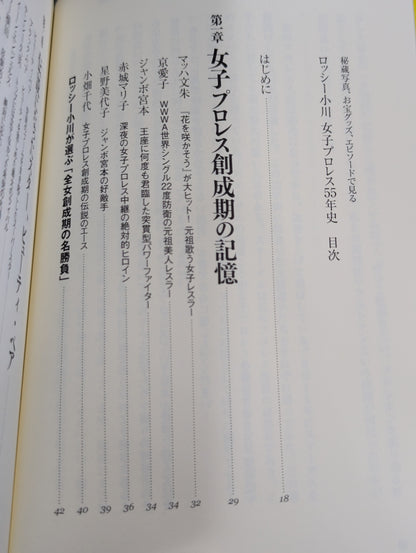 秘蔵写真、お宝グッズ、エピソードで見る
ロッシー小川 女子プロレス55年史 目次
はじめに 18
第一章 女子プロレス創成期の記憶 29
マッハ文朱 「花を咲かそう」が大ヒット！ 元祖歌う女子レスラー 32
京愛子 WWWA世界シングル22度防衛の元祖美人レスラー 34
ジャンボ宮本 王座に何度も君臨した突貫型パワーファイター 34
赤城マリ子 深夜の女子プロレス中継の絶対的ヒロイン 36
星野美代子 ジャンボ宮本の好敵手 39
小畑千代 女子プロレス創成期の伝説のエース 40
ロッシー小川が選ぶ「全女創成期の名勝負」 42